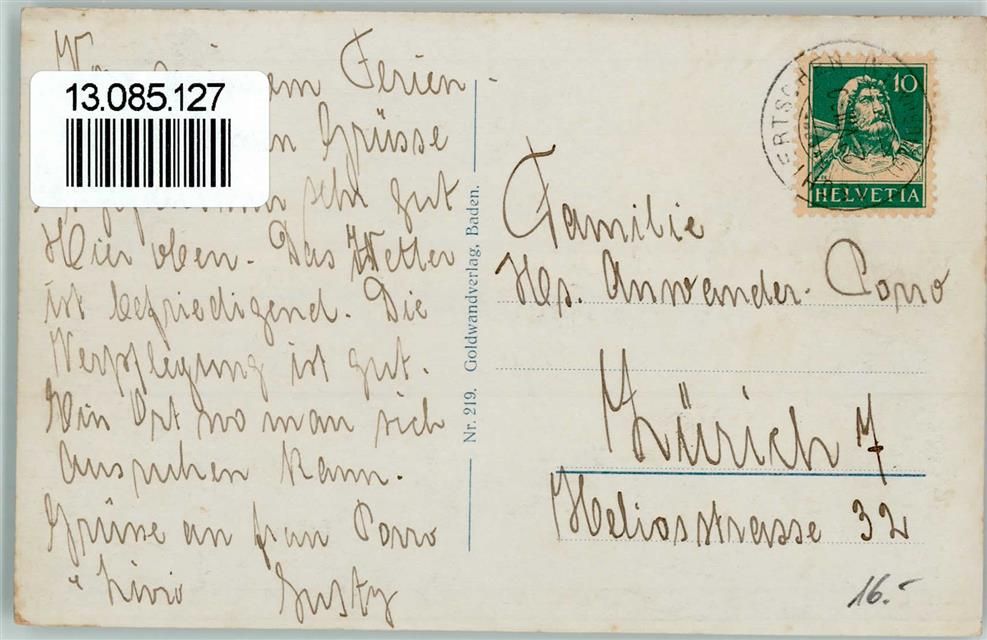 13.085.127
Ferien-
Grüsse
sehr gut
Hier oben. Das Wetter
ist befriedigend. Die
Verpflegung ist gut.
Ein Ort wo man sich
ausruhen kann.
Grüsse an Frau Porro
" Livio Gusty
Nr. 219. Goldwandverlag, Baden.
10
HELVETIA
Familie
Hs. Anwander-Porro
Zürich 7
Heliosstrasse 32
16.-